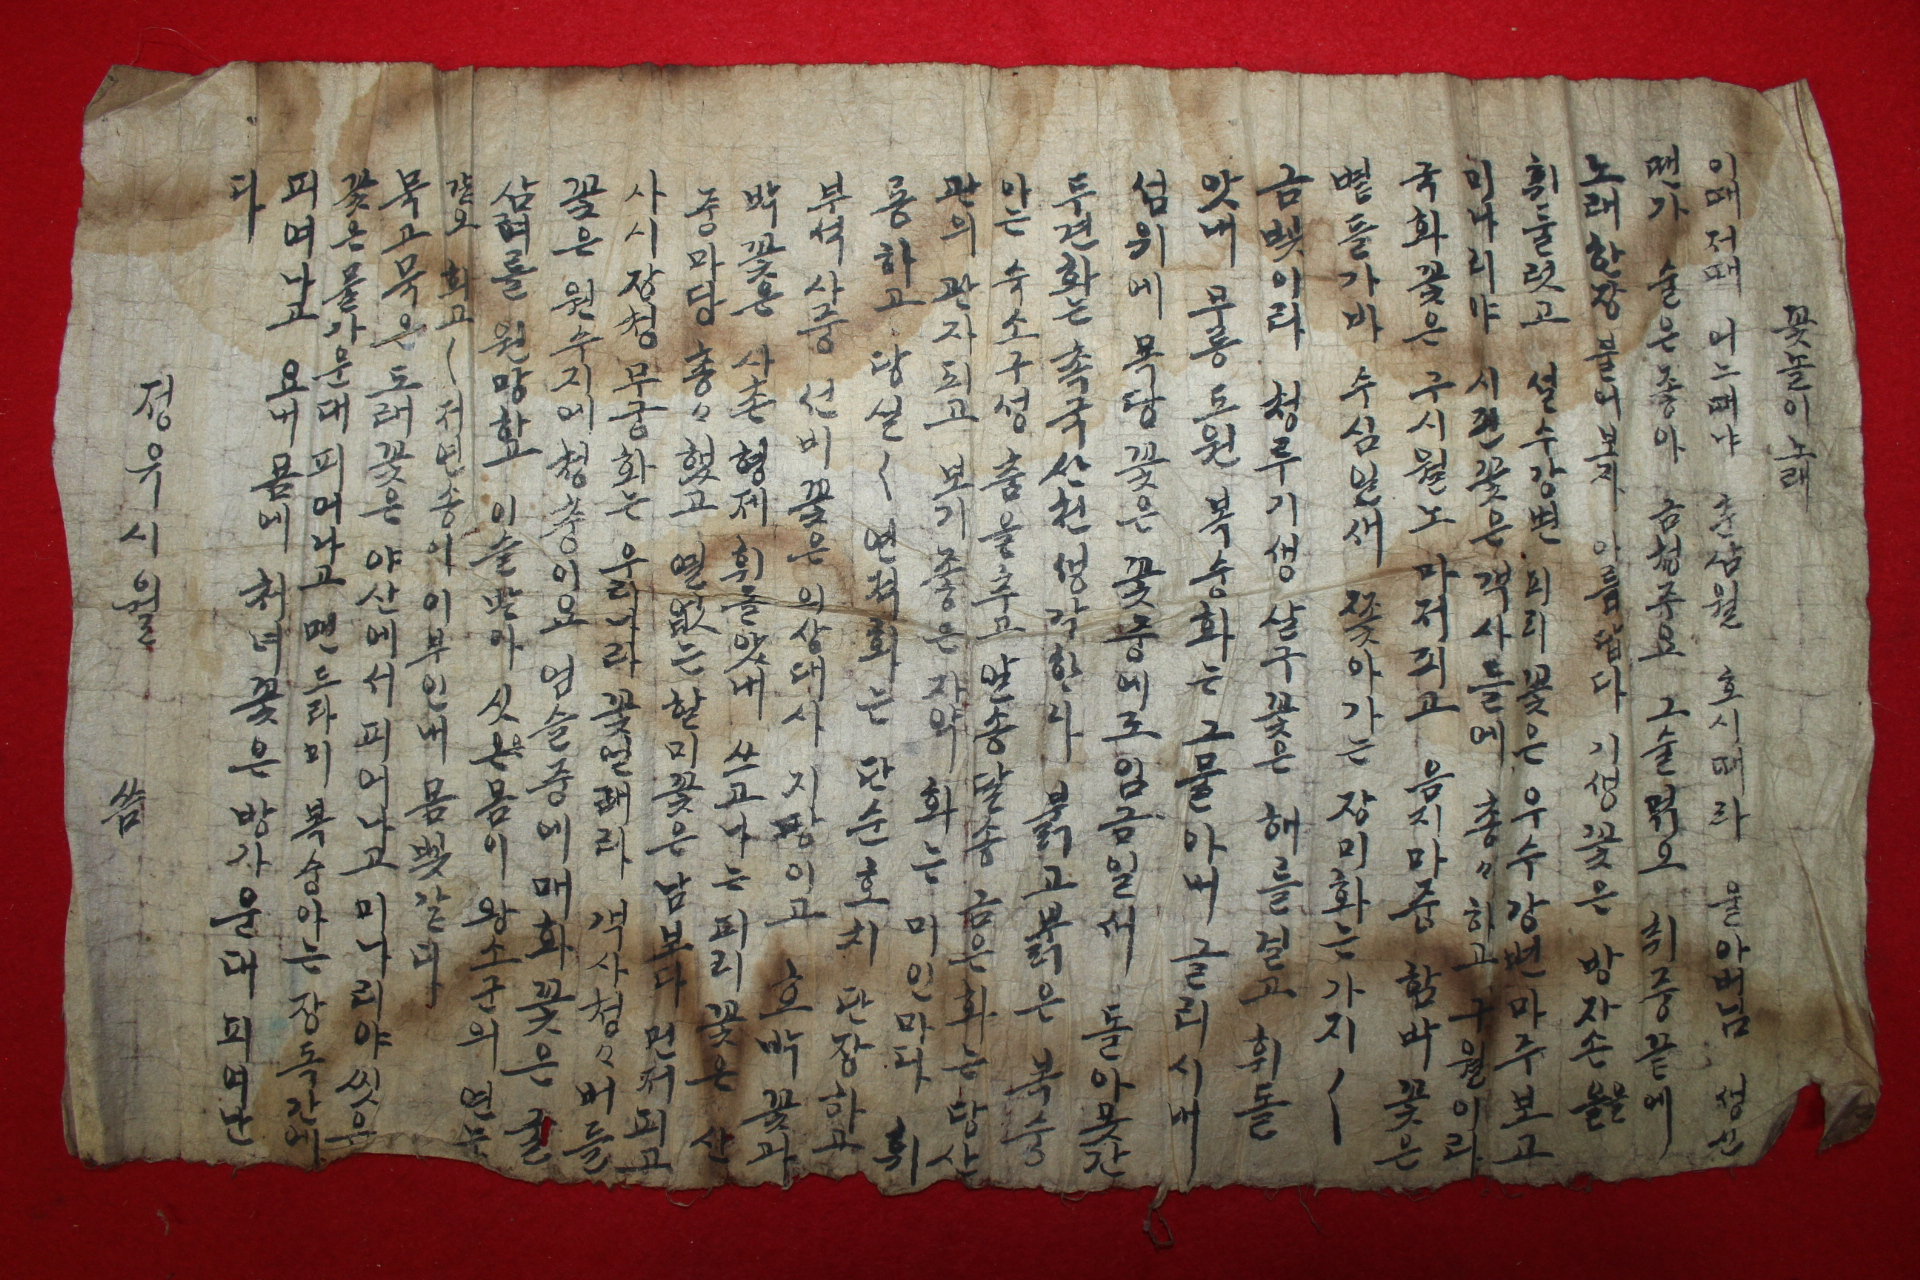 꽃놀이 노래
이때 저때 어느때냐 춘삼월 호시때라 울아버님 생신
땐가 술은 좋아 금청주요 그술 먹고 취중끝에
노래한장 불너보자 아름답다 기생꽃은 방자손을
휘둘럿고 설수강변 피리꽃은 우수강변 마주보고
미나리야 시전꽃은 객사뜰에 총〃하고 구월이라
국화꽃은 구시월노 마저피고 음지마중 함바꽃은
별들가바 수심일새 쫓아가는 장미화는 가지〱
금빛이라 청루기생 살구꽃은 해를 걸고 휘돌
앗내 무릉도원 복숭화는 그물아버 글리시내
섬위에 목단꽃은 꽃중에도 임금일세 돌아못간
두견화는 촉국산천 생각한다 붉고붉은 복숭
아는 숙소구성 춤을추고 안송달송 금은화는 당산
관의 관자피고 보기좋은 자약화는 미인마다 휘
롱하고 당실〱 연적화는 단순호치 단장하고
부석사중 선비꽃은 의상대사 지팡이고 호박꽃과
박꽃은 사촌형제 휘돌앗내 쓰고나는 피리꽃은 산
중마당 총〃했고 멸없는 할미꽃은 남보다 먼저피고
사시장청 무궁화는 우리나라 꽃일래라 객사청〃 버들
꽃은 원수지에 청춘이요 엄슬중에 매화꽃은 굴
삼려를 원망하고 이슬받아 싯은몸이 왕소군의 연
갈고 희고〱 저면송이 이부인내 몸빛갈다
묵고묵은 도래꽃은 야산에서 피어나고 미나리야 씻은
꽃은 물가운대 피어나고 맨드라미 복숭아는 장독간에
피여나고 요내몸에 처녀꽃은 방가운대 피여난
다
정유 시월 씀